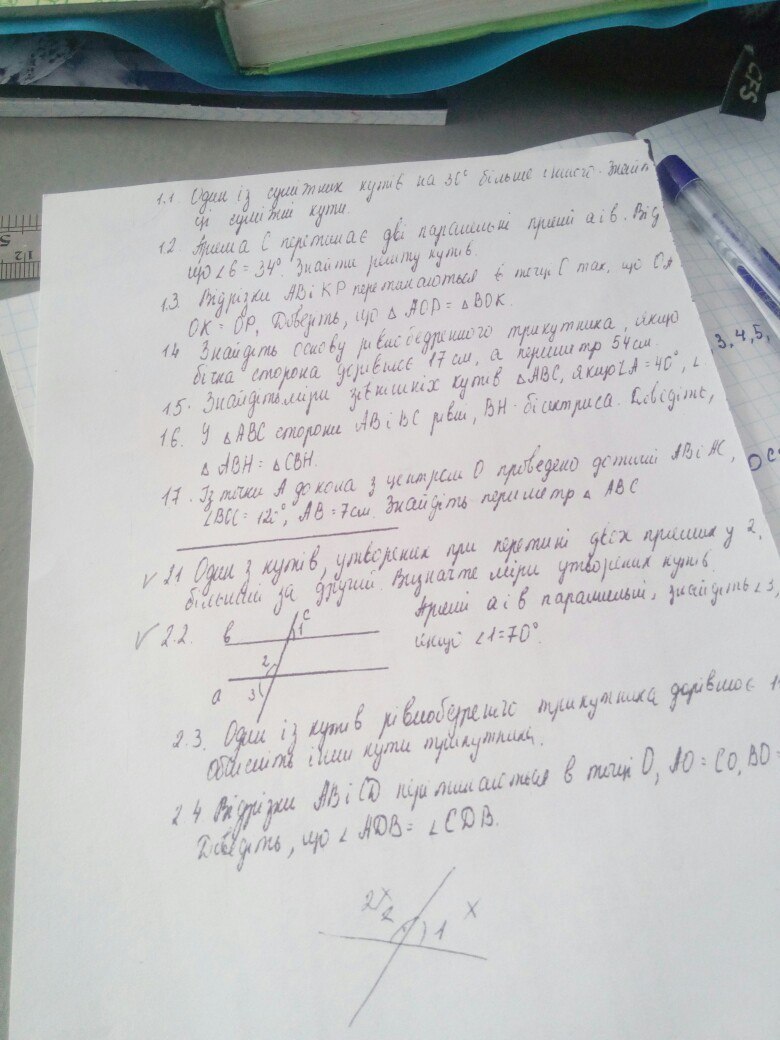 CFS
12
5
1.1. Один із суміжних кутів на 36° більше іншого. Знайт
ці суміжні кути.
1.2. Пряма С перетинає дві паралельні прямі а і в. Від
що ∠6 = 34°. Знайти решту кутів.
1.3. Відрізки АВ і КР перетинаються в точці О так, що ОА
ОК = ОР, Доведіть, що △ АОР = △ ВОК.
1.4 Знайдіть основу рівнобедренного трикутника, якщо
бічна сторона дорівнює 17 см, а периметр 54 см.
1.5. Знайдіть міри зовнішніх кутів △АВС, якщо ∠А = 40°, ∠
1.6. У △ АВС сторони АВ і ВС рівні, ВН - бісектриса. Доведіть,
△ АВН = △ СВН.
1.7. Із точки А до кола з центром О проведено дотичні АВ і АС,
= 120°, АВ = 7 см. Знайдіть периметр △ АВС
3, 4, 5,
✓ 2.1 Один з кутів, утворених при перетині двох прямих у 2,
більший за другий. Визначте міри утворених кутів.
✓ 2.2. Прямі а і в паралельні, знайдіть ∠3,
якщо ∠1 = 70°.
в
с
1
2
а
3
2.3. Один із кутів рівнобедреного трикутника дорівнює 1
Обчисліть інші кути трикутника.
2.4. Відрізки АВ і СD перетинаються в точці О, АО = СО, ВО =
Доведіть, що ∠ АDВ = ∠ СDВ.
2x
2
1
x